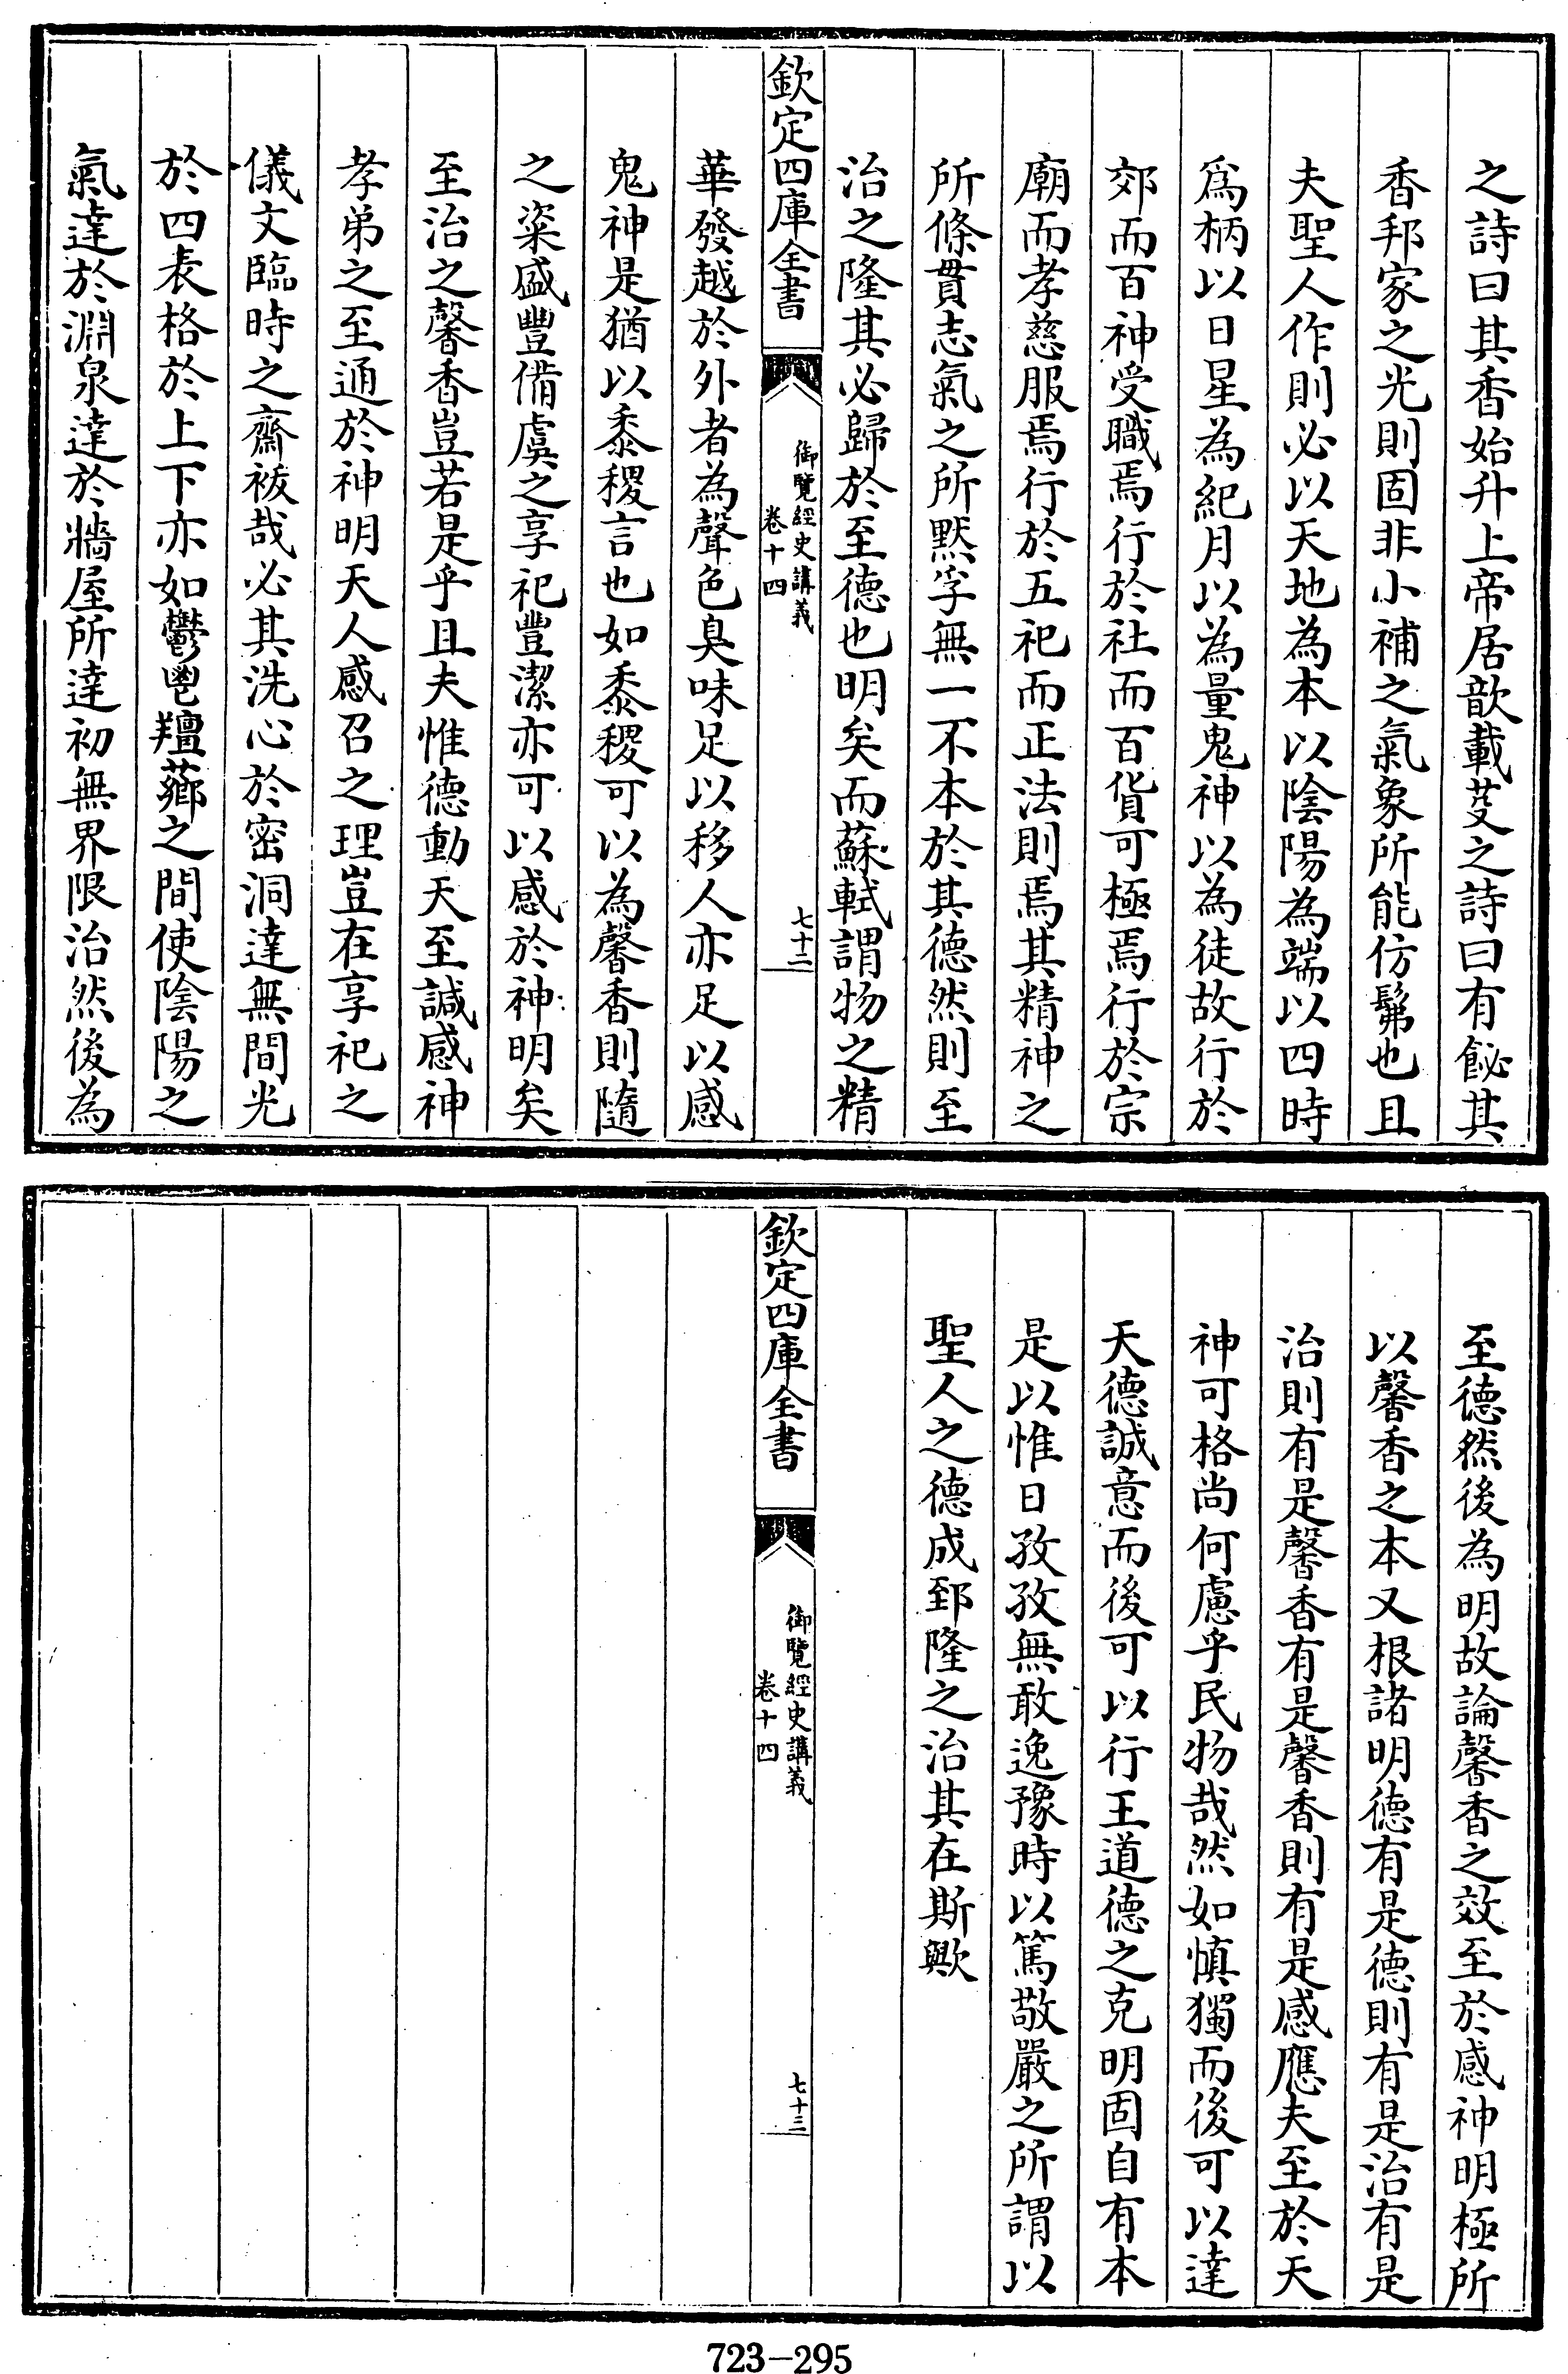 之詩曰其香始升上帝居歆載芟之詩曰有飶其
香邦家之光則固非小補之氣象所能仿髴也且
夫聖人作則必以天地為本以陰陽為端以四時
爲柄以日星為紀月以為量鬼神以為徒故行於
郊而百神受職焉行於社而百貨可極焉行於宗
廟而孝慈服焉行於五祀而正法則焉其精神之
所條貫志氣之所默孚無一不本於其德然則至
治之隆其必歸於至德也明矣而蘇軾謂物之精
欽定四庫全書
御覽經史講義
卷十四
七十二
華發越於外者為聲色臭味足以移人亦足以感
鬼神是猶以黍稷言也如黍稷可以為馨香則隨
之粢盛豐備虞之享祀豐潔亦可以感於神明矣
至治之馨香豈若是乎且夫惟德動天至諴感神
孝弟之至通於神明天人感召之理豈在享祀之
儀文臨時之齋祓哉必其洗心於密洞達無間光
於四表格於上下亦如鬱鬯羶薌之間使陰陽之
氣達於淵泉達於牆屋所達初無界限治然後為
至德然後為明故論馨香之效至於感神明極所
以馨香之本又根諸明德有是德則有是治有是
治則有是馨香有是馨香則有是感應夫至於天
神可格尚何慮乎民物哉然如慎獨而後可以達
天德誠意而後可以行王道德之克明固自有本
是以惟日孜孜無敢逸豫時以篤敬嚴之所謂以
聖人之德成郅隆之治其在斯歟
欽定四庫全書
御覽經史講義
卷十四
七十三
723-295